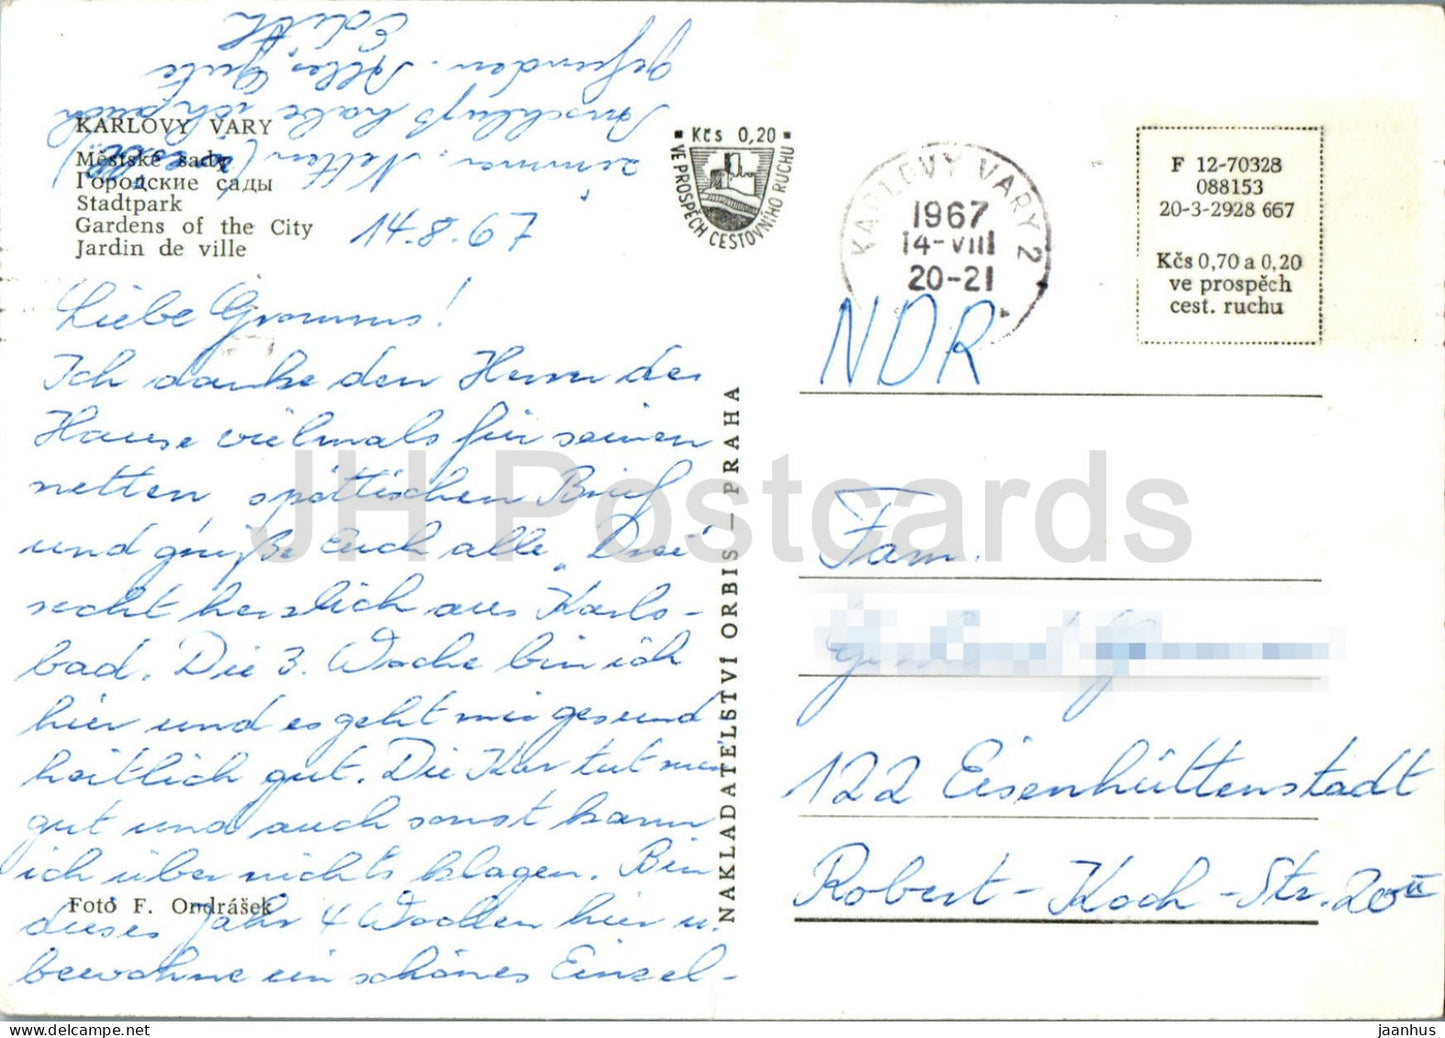 KARLOVY VARY
Městské sady
Городские сады
Stadtpark
Gardens of the City
Jardin de ville
14.8.67
Liebe Gramms!
Ich danke den Herrn des
Hause vielmals für seinen
netten, spöttischen Brief
und grüße Euch alle „Drei"
recht herzlich aus Karls-
bad. Die 3. Woche bin ich
hier und es geht mir gesund
heitlich gut. Die Kur tut mir
gut und auch sonst kann
ich über nichts klagen. Bin
dieses Jahr 4 Wochen hier u.
bewohne ein schönes Einzel-
zimmer. Netten
Anschluß habe ich auch
gefunden. Alles Gute
Edith
Foto F. Ondrášek
NAKLADATELSTVÍ ORBIS — PRAHA
Kčs 0,20
VE PROSPĚCH CESTOVNÍHO RUCHU
KARLOVY VARY 2
1967
14-VIII
20-21
F 12-70328
088153
20-3-2928 667
Kčs 0,70 a 0,20
ve prospěch
cest. ruchu
NDR
Fam.
122 Eisenhüttenstadt
Robert-Koch-Str. 20 II
JH Postcards
jaanhus